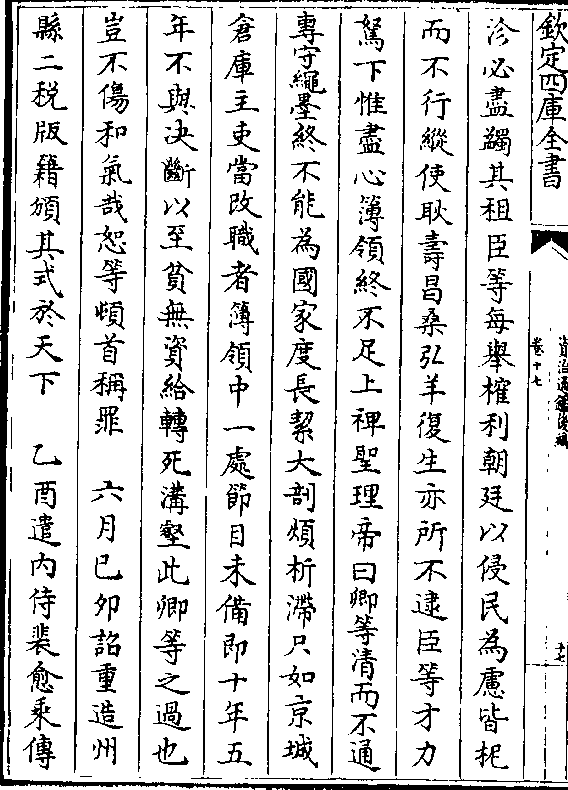 欽定四庫全書
資治通鑑後編
卷十七
十七
沴必盡蠲其租臣等每舉榷利朝廷以侵民為慮皆杷
而不行縱使耿壽昌桑弘羊復生亦所不逮臣等才力
駑下惟盡心簿領終不足上裨聖理帝曰卿等清而不通
專守繩墨終不能為國家度長絜大剖煩析滯只如京城
倉庫主吏當改職者簿領中一處節目未備即十年五
年不與決斷以至貧無資給轉死溝壑此卿等之過也
豈不傷和氣哉恕等頓首稱罪　六月已夘詔重造州
縣二稅版籍頒其式於天下　乙酉遣內侍裴愈乘傳